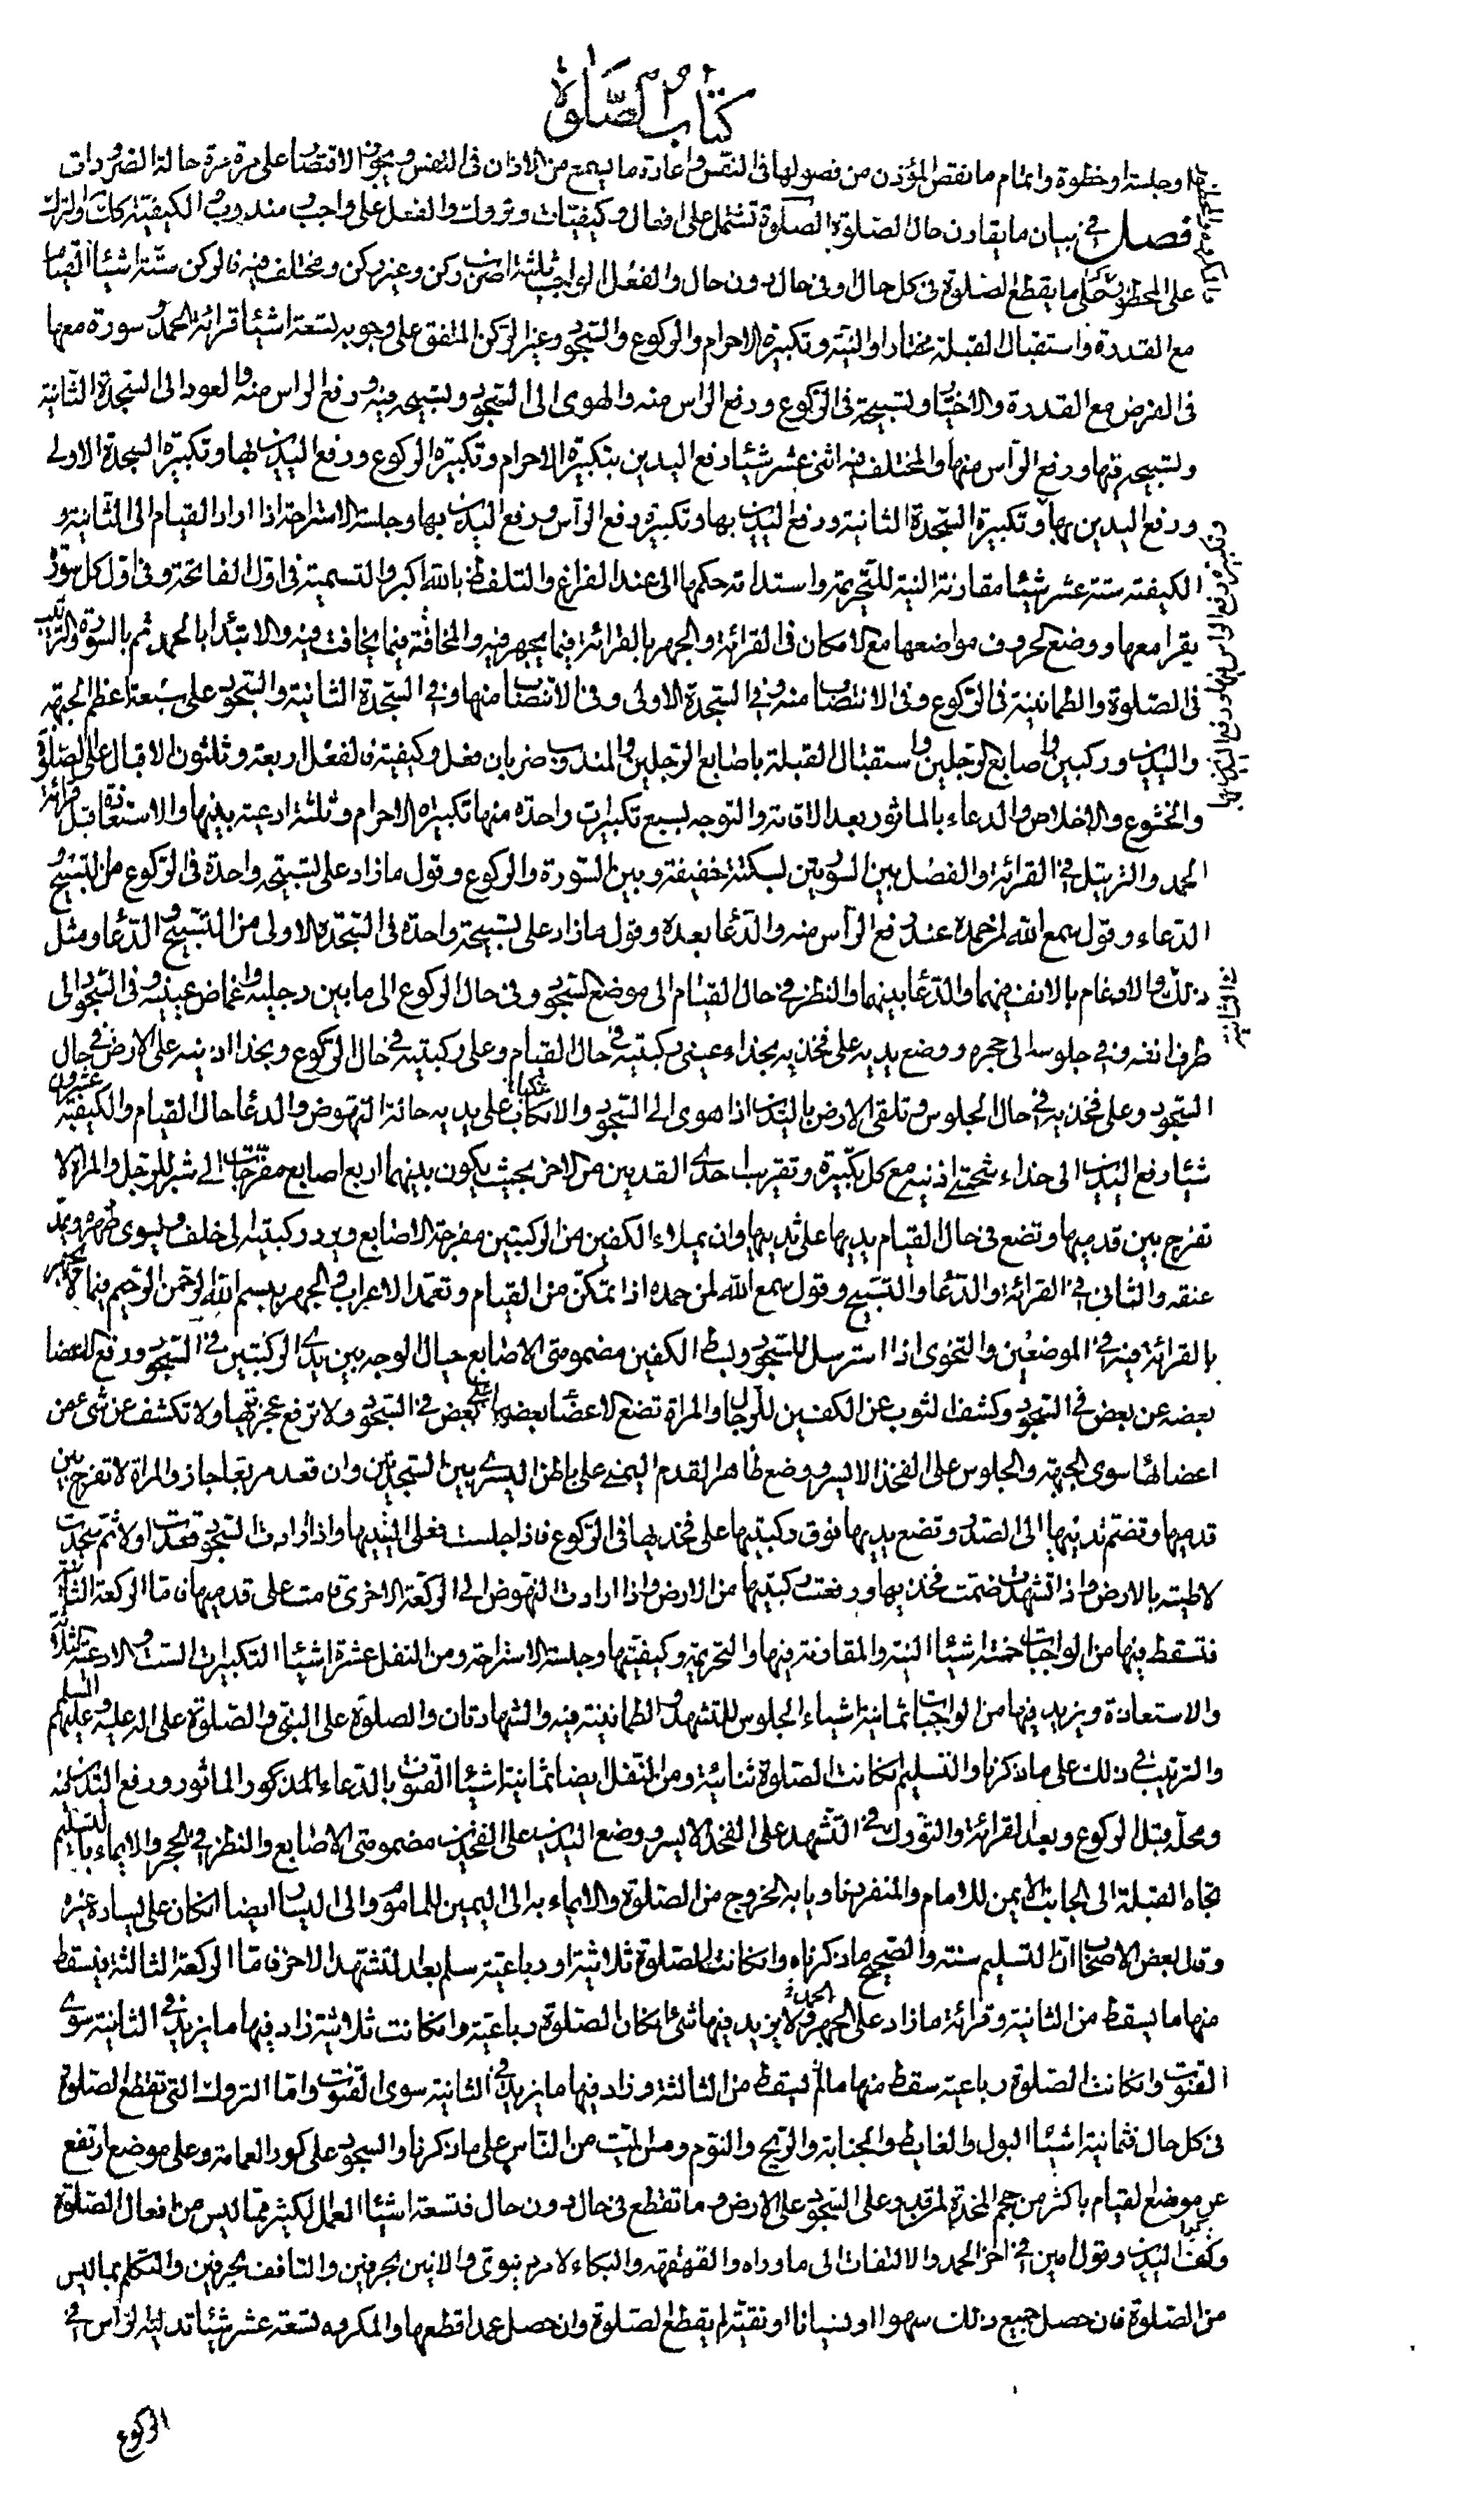 كتاب الصلوة
او جلسة او خطوة واتمام ما نقص المؤذن من فصولها فى النفس واعادة ما يسمع من الاذان فى النفس ويجوز الاقتصار على مرة مرة حالة الضرورات
فصل فى بيان ما يقارن حال الصلوة الصلوة تشتمل على افعال وكيفيات وتروك والفعل على واجب ومندوب والكيفية كذلك والتروك
على المحظور وعلى ما يقطع الصلوة فى كل حال وفى حال دون حال والفعل الواجب ثلثة اضرب ركن وغير ركن ومختلف فيه فالركن ستة اشيئا القيام
مع القدرة واستقبال القبلة مختارا والنية وتكبيرة الاحرام والركوع والسجود وغير الركن المتفق على وجوبه تسعة اشيئا قرائة الحمد وسورة معها
فى الفرض مع القدرة والاختيار وتسبيحة فى الركوع ورفع الراس منه والهوى الى السجود وتسبيحه فيه ورفع الراس منه والعود الى السجدة الثانية
وتسبيحه فيها ورفع الرأس منها والمختلف فيه اثنى عشر شيئا رفع اليدين بتكبيرة الاحرام وتكبيرة الركوع ورفع اليدين بها وتكبيرة السجدة الاولى
ورفع اليدين بها وتكبيرة السجدة الثانية ورفع اليدين بها وتكبيره رفع الرأس ورفع اليدين بها وجلسة الاستراحة اذا اراد القيام الى الثانية و
الكيفية ستة عشر شيئا مقارنة النية للتحريمة واستدامة حكمها الى عند الفراغ والتلفظ بالله اكبر والتسمية فى اول الفاتحة وفى اول كل سورة
يقرا معها ووضع الحروف مواضعها مع الامكان فى القرائة والجهر بالقرائة فيما يجهر فيه والمخافتة فيما يخافت فيه والابتدا بالحمد ثم بالسورة والترتيب
فى الصلوة والطمانينة فى الركوع وفى الانتصاب منه وفى السجدة الاولى وفى الانتصاب منها وفى السجدة الثانية والسجود على سبعة اعظم الجبهة
واليدين وركبتين واصابع الرجلين واستقبال القبلة باصابع الرجلين والمندوب ضربان فعل وكيفية فالفعل اربعة وثلثون الاقبال على الصلوة
والخشوع والاخلاص والدعاء بالماثور بعد الاقامة والتوجه بسبع تكبيرات واحدة منها تكبيرة الاحرام وثلثة ادعية بينها والاستعاذة قبل قرائة
الحمد والترتيل فى القرائة والفصل بين السورتين بسكتة خفيفة وبين السورة والركوع وقول ما زاد على تسبيحة واحدة فى الركوع من التسبيح و
الدعاء وقول سمع الله لمن حمده عند رفع الرأس منه والدعا بعده وقول ما زاد على تسبيحة واحدة فى السجدة الاولى من التسبيح والدعا ومثل
ذلك والارغام بالانف فيهما والدعا بينهما والنظر فى حال القيام الى موضع السجود وفى حال الركوع الى ما بين رجليه واغماض عينيه وفى السجود الى
طرف انفه وفى جلوسه الى حجره ووضع يديه على فخذيه بحذاء عينى ركبتيه فى حال القيام وعلى ركبتيه فى حال الركوع وبحذا اذنيه على الارض فى حال
السجود وعلى فخذيه فى حال الجلوس وتلقى الارض باليدين اذا هوى الى السجود والاتكاء على يديه حالة النهوض والدعا حال القيام والكيفية عشرون
شيئا رفع اليدين الى حذاء شحمتى اذنيه مع كل تكبيرة وتقريب احدى القدمين من الاخر بحيث يكون بينهما اربع اصابع مفرجات الى شبر للرجل والمراة لا
تفرج بين قدميها وتضع فى حال القيام يديها على ثدييها وان يملاء الكفين من الركبتين مفرجة الاصابع ويرد ركبتيه الى خلف ويسوى ظهره ويمد
عنقه والتانى فى القرائة والدعا والتسبيح وقول سمع الله لمن حمده اذا تمكن من القيام وتعمد الاعراب والجهر ببسم الله الرحمن الرحيم فيما لا يجهر
بالقرائة فيه فى الموضعين والتخوى اذا استرسل للسجود وبسط الكفين مضمومتى الاصابع حيال الوجه بين يدى الركبتين فى السجود ورفع الاعضا
بعضه عن بعض فى السجود وكشف الثوب عن الكفين للرجال والمراة تضع الاعضا بعضها على بعض فى السجود ولا ترفع عجزتها ولا تكشف عن شئ من
اعضائها سوى الجبهة والجلوس على الفخذ الايسر ووضع ظاهر القدم اليمنى على باطن اليسرى بين السجدتين وان قعد مربعا جاز والمراة لا تفرج بين
قدميها وتضم ثدييها الى الصدر وتضع يديها فوق ركبتيها على فخذيها فى الركوع فاذا جلست فعلى اليتيها واذا ارادت السجود قعدت اولا ثم سجدت
لاطية بالارض واذا تشهدت ضمت فخذيها ورفعت ركبتيها من الارض واذا ارادت النهوض الى الركعة الاخرى قامت على قدميها فاما الركعة الثانية
فتسقط فيها من الواجبات خمسة اشيئا النية والمقارنة فيها والتحريمة وكيفيتها وجلسة الاستراحة ومن النفل عشرة اشيئا التكبيرات الست والادعية الثلثة
والاستعاذة ويزيد فيها من الواجبات ثمانية اشياء الجلوس للتشهد والطمانينة فيه والشهادتان والصلوة على النبى والصلوة على اله عليه وعليهم السلم
والترتيب فى ذلك على ما ذكرنا والتسليم انكانت الصلوة ثنائية ومن النفل ايضا ثمانية اشيئا القنوت بالدعاء المذكور الماثور ورفع اليدين به
ومحله قبل الركوع وبعد القرائة والتورك فى التشهد على الفخذ الايسر ووضع اليدين على الفخذين مضمومتى الاصابع والنظر فى الحجر والايماء بالتسليم
تجاه القبلة الى الجانب الايمن للامام والمنفرد ناويا به الخروج من الصلوة والايماء به الى اليمين للماموم والى اليسار ايضا انكان على يساره غيره
وقال بعض الاصحاب ان التسليم سنة والصحيح ما ذكرناه وانكانت الصلوة ثلاثية او رباعية سلم بعد التشهد الاخر فاما الركعة الثالثة فيسقط
منها ما يسقط من الثانية وقرائة ما زاد على الحمد ولا يزيد فيها شئ انكان الصلوة رباعية وانكانت ثلاثية زاد فيها ما يزيد فى الثانية سوى
القنوت وانكانت الصلوة رباعية سقط منها ما لم يسقط من الثالثة وزاد فيها ما يزيد فى الثانية سوى القنوت واما التروك التى تقطع الصلوة
فى كل حال فثمانية اشيئا البول والغايط والجنابة والريح والنوم ومس الميت من الناس على ما ذكرنا والسجود على كور العمامة وعلى موضع ارتفع
عن موضع القيام باكثر من حجم المخدة لمرقد وعلى السجود على الارض وما تقطع فى حال دون حال فتسعة اشيئا العمل الكثير مما ليس من افعال الصلوة
وكتف اليدين وقول امين فى اخر الحمد والالتفات الى ما وراه والقهقهه والبكاء لامر دنيوى والانين بحرفين والتافف بحرفين والتكلم بما ليس
من الصلوة فان حصل جميع ذلك سهوا او نسيانا او تقية لم يقطع الصلوة وان حصل عمدا قطعها والمكروه تسعة عشر شيئا تدلية الرأس فى
الركوع